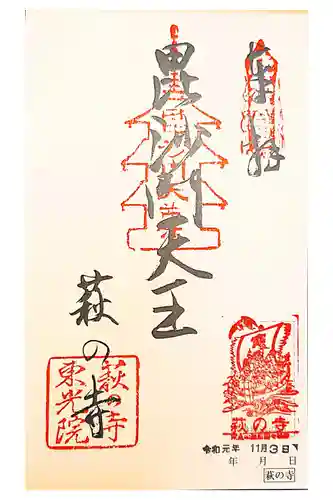 奉拝
毘沙門天王
萩の寺
萩寺
東光院
萩の寺
令和元年 11月3日
年 月 日
萩の寺